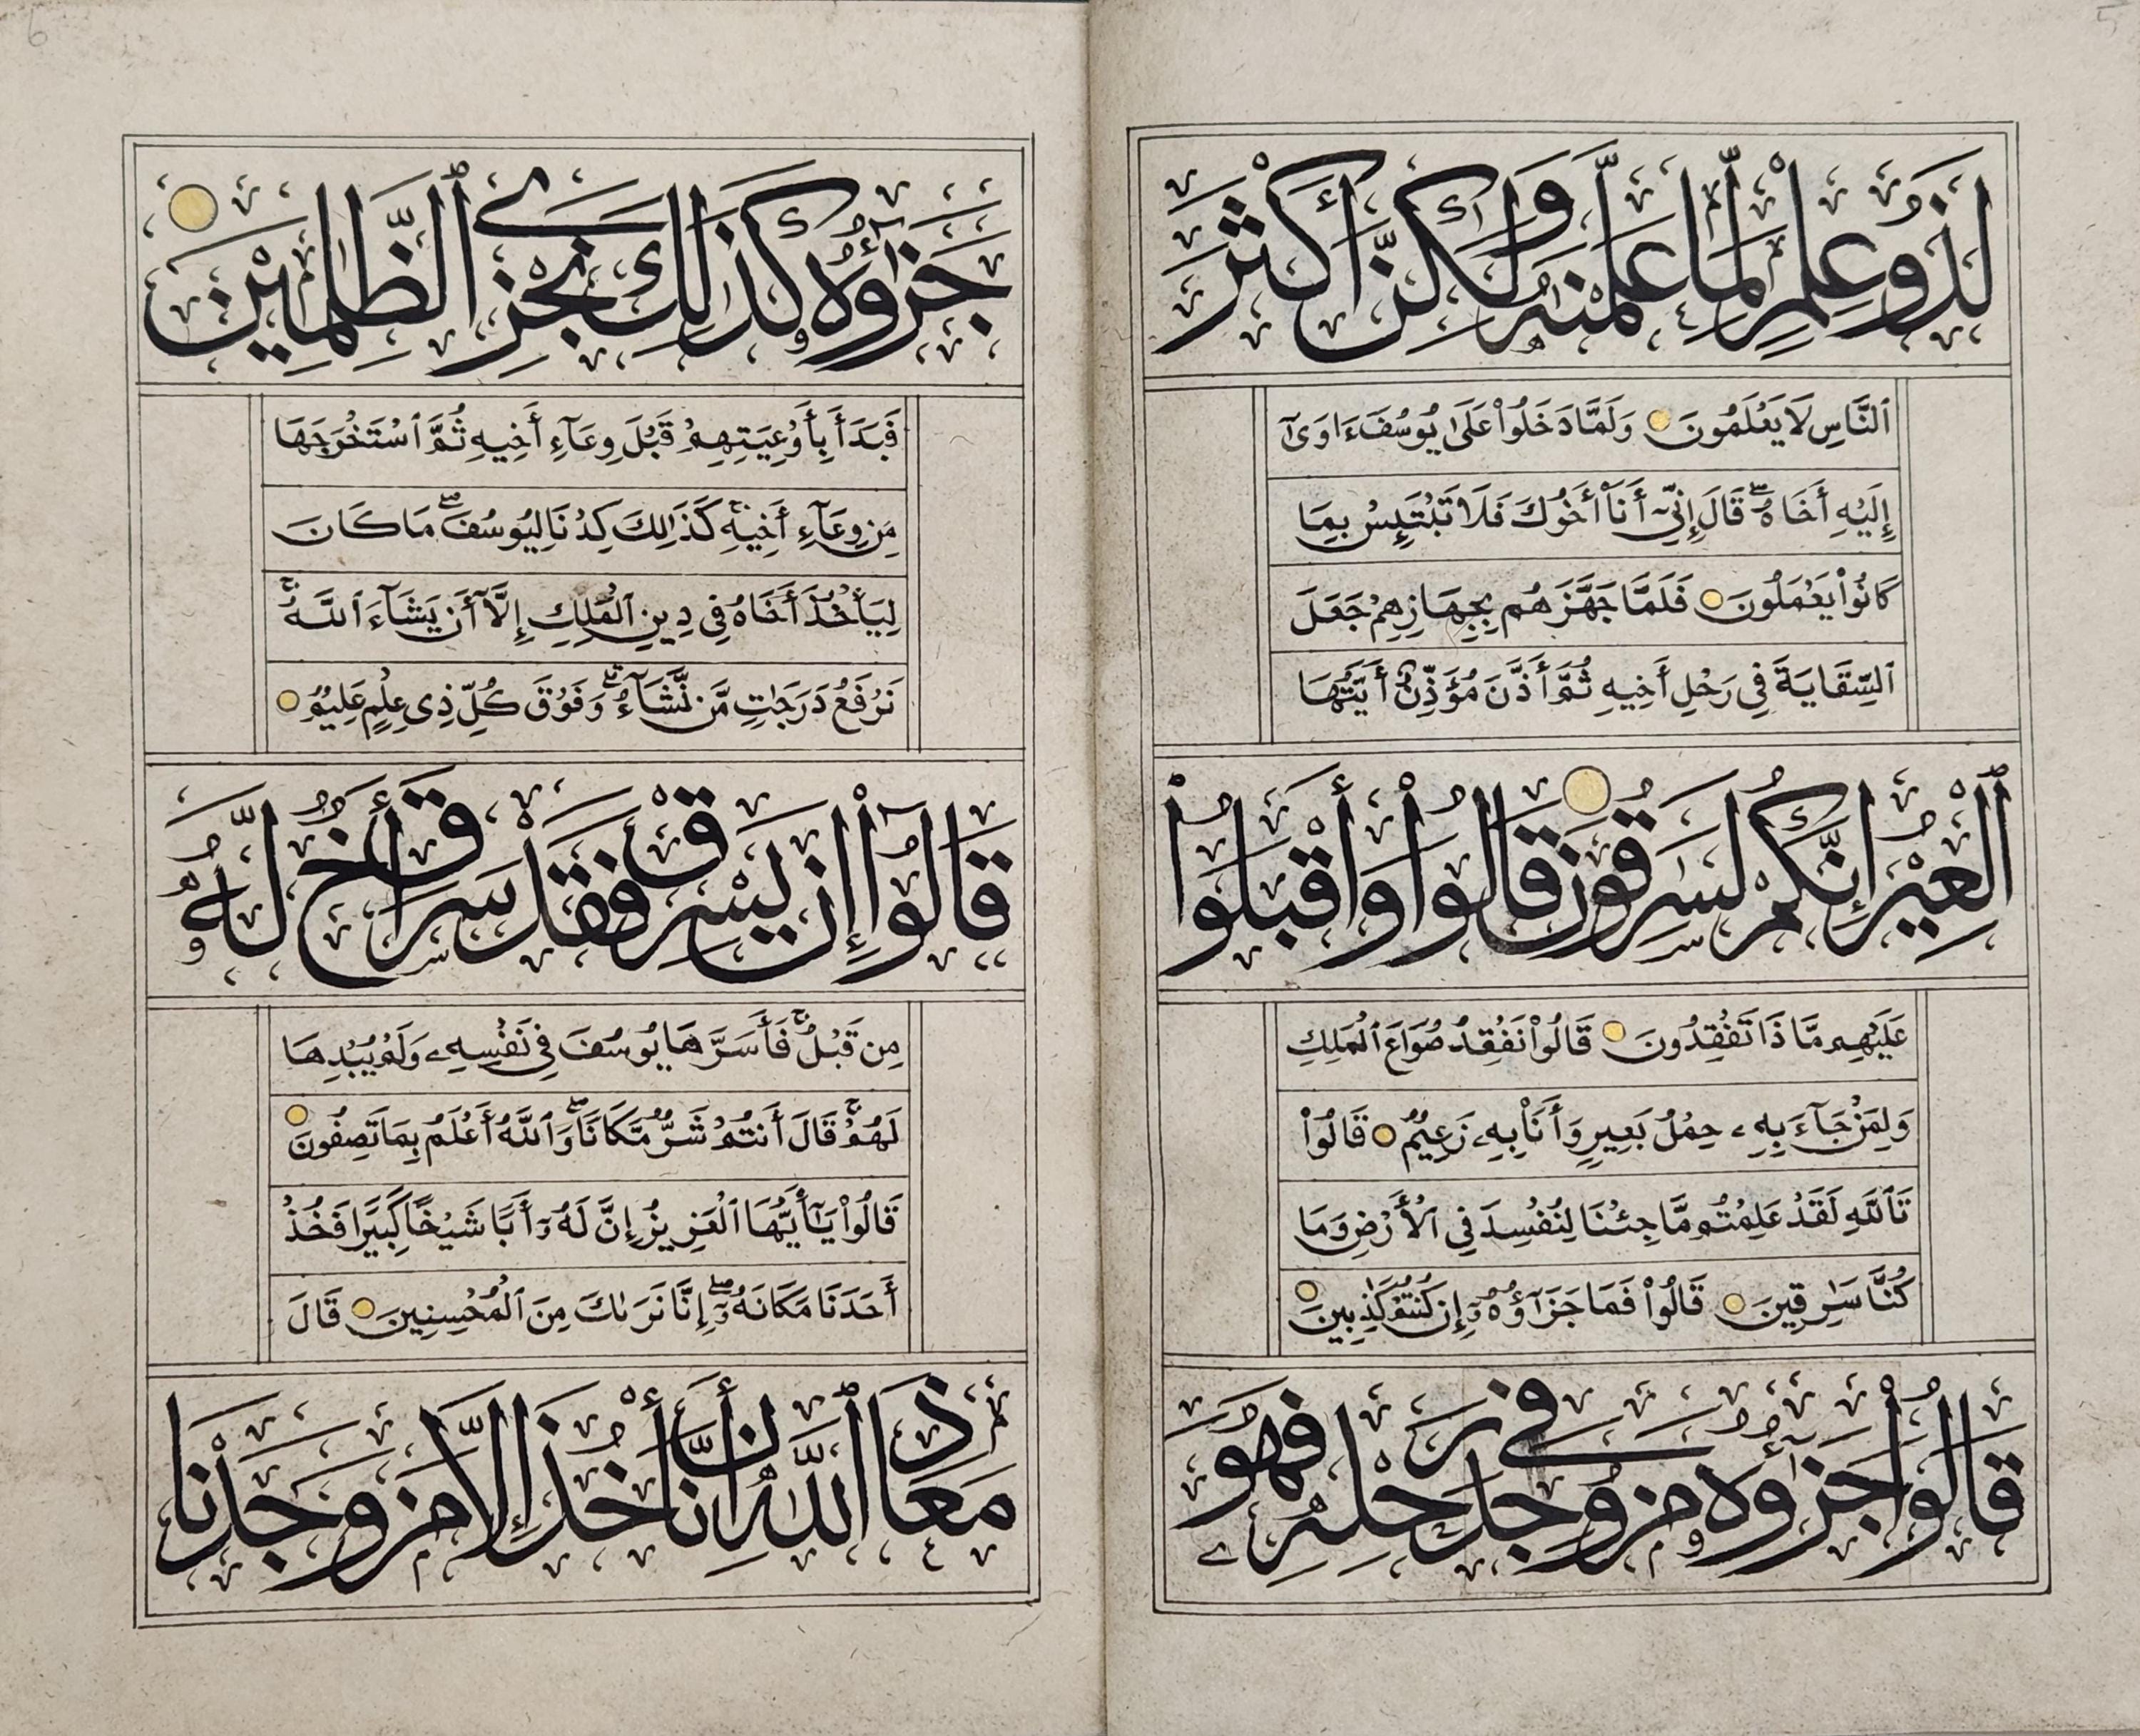 لَذُو عِلْمٍ لِّمَا عَلَّمْنَٰهُ وَلَٰكِنَّ أَكْثَرَ
ٱلنَّاسِ لَا يَعْلَمُونَ وَلَمَّا دَخَلُوا۟ عَلَىٰ يُوسُفَ ءَاوَىٰٓ
إِلَيْهِ أَخَاهُ ۖ قَالَ إِنِّىٓ أَنَا۠ أَخُوكَ فَلَا تَبْتَئِسْ بِمَا
كَانُوا۟ يَعْمَلُونَ فَلَمَّا جَهَّزَهُم بِجَهَازِهِمْ جَعَلَ
ٱلسِّقَايَةَ فِى رَحْلِ أَخِيهِ ثُمَّ أَذَّنَ مُؤَذِّنٌ أَيَّتُهَا
ٱلْعِيرُ إِنَّكُمْ لَسَٰرِقُونَ قَالُوا۟ وَأَقْبَلُوا۟
عَلَيْهِم مَّاذَا تَفْقِدُونَ قَالُوا۟ نَفْقِدُ صُوَاعَ ٱلْمَلِكِ
وَلِمَن جَآءَ بِهِۦ حِمْلُ بَعِيرٍ وَأَنَا۠ بِهِۦ زَعِيمٌ قَالُوا۟
تَٱللَّهِ لَقَدْ عَلِمْتُم مَّا جِئْنَا لِنُفْسِدَ فِى ٱلْأَرْضِ وَمَا
كُنَّا سَٰرِقِينَ قَالُوا۟ فَمَا جَزَٰٓؤُهُۥٓ إِن كُنتُمْ كَٰذِبِينَ
قَالُوا۟ جَزَٰٓؤُهُۥ مَن وُجِدَ فِى رَحْلِهِۦ فَهُوَ
جَزَٰٓؤُهُۥ كَذَٰلِكَ نَجْزِى ٱلظَّٰلِمِينَ
فَبَدَأَ بِأَوْعِيَتِهِمْ قَبْلَ وِعَآءِ أَخِيهِ ثُمَّ ٱسْتَخْرَجَهَا
مِن وِعَآءِ أَخِيهِ ۚ كَذَٰلِكَ كِدْنَا لِيُوسُفَ ۖ مَا كَانَ
لِيَأْخُذَ أَخَاهُ فِى دِينِ ٱلْمَلِكِ إِلَّآ أَن يَشَآءَ ٱللَّهُ ۚ
نَرْفَعُ دَرَجَٰتٍ مَّن نَّشَآءُ ۗ وَفَوْقَ كُلِّ ذِى عِلْمٍ عَلِيمٌ
قَالُوٓا۟ إِن يَسْرِقْ فَقَدْ سَرَقَ أَخٌ لَّهُۥ
مِن قَبْلُ ۚ فَأَسَرَّهَا يُوسُفُ فِى نَفْسِهِۦ وَلَمْ يُبْدِهَا
لَهُمْ ۚ قَالَ أَنتُمْ شَرٌّ مَّكَانًا ۖ وَٱللَّهُ أَعْلَمُ بِمَا تَصِفُونَ
قَالُوا۟ يَٰٓأَيُّهَا ٱلْعَزِيزُ إِنَّ لَهُۥٓ أَبًا شَيْخًا كَبِيرًا فَخُذْ
أَحَدَنَا مَكَانَهُۥٓ ۖ إِنَّا نَرَىٰكَ مِنَ ٱلْمُحْسِنِينَ قَالَ
مَعَاذَ ٱللَّهِ أَن نَّأْخُذَ إِلَّا مَن وَجَدْنَا